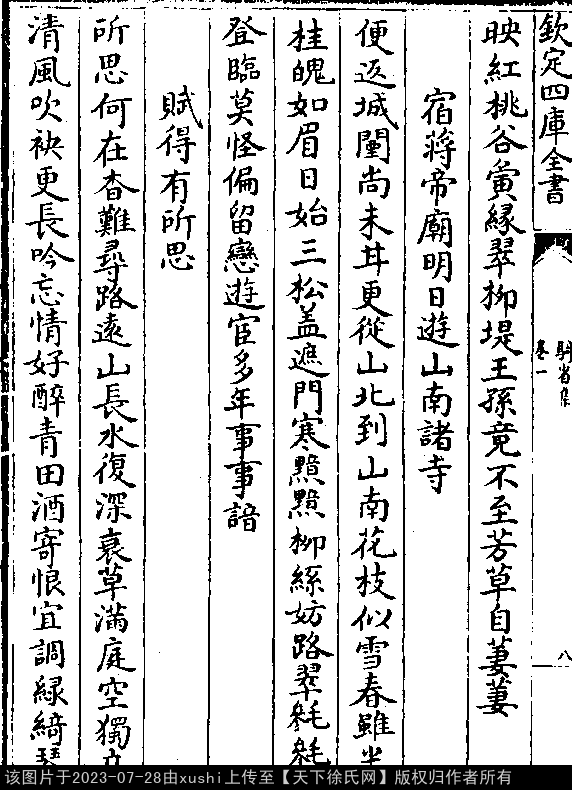 欽定四庫全書
騎省集
卷一
八
映紅桃谷夤緣翠柳堤王孫竟不至芳草自萋萋
宿蔣帝廟明日遊山南諸寺
便返城闉尚未甘更從山北到山南花枝似雪春雖半
桂魄如眉日始三松盖遮門寒黯黯柳絲妨路翠毿毿
登臨莫怪偏留戀遊宦多年事事諳
賦得有所思
所思何在杳難尋路遠山長水復深衰草滿庭空獨立
清風吹袂更長吟忘情好醉青田酒寄恨宜調緑綺琴
该图片于2023-07-28由xushi上传至【天下徐氏网】版权归作者所有